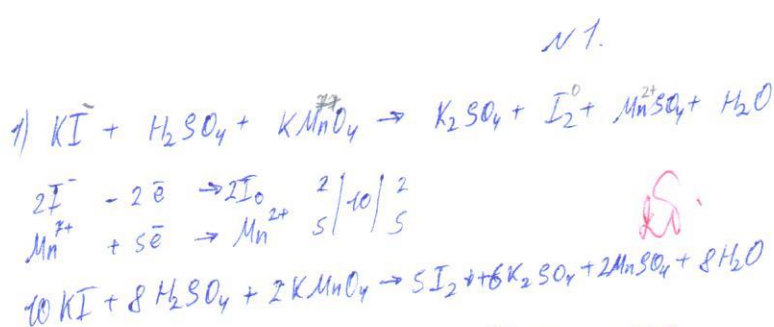 N1.
1) KI⁻ + H₂SO₄ + KMn⁷⁺O₄ → K₂SO₄ + I₂⁰ + Mn²⁺SO₄ + H₂O
2I⁻ - 2ē → 2I₀ 2 | 10 | 2
Mn⁷⁺ + 5ē → Mn²⁺ 5 | | 5
10KI + 8H₂SO₄ + 2KMnO₄ → 5I₂ + 6K₂SO₄ + 2MnSO₄ + 8H₂O